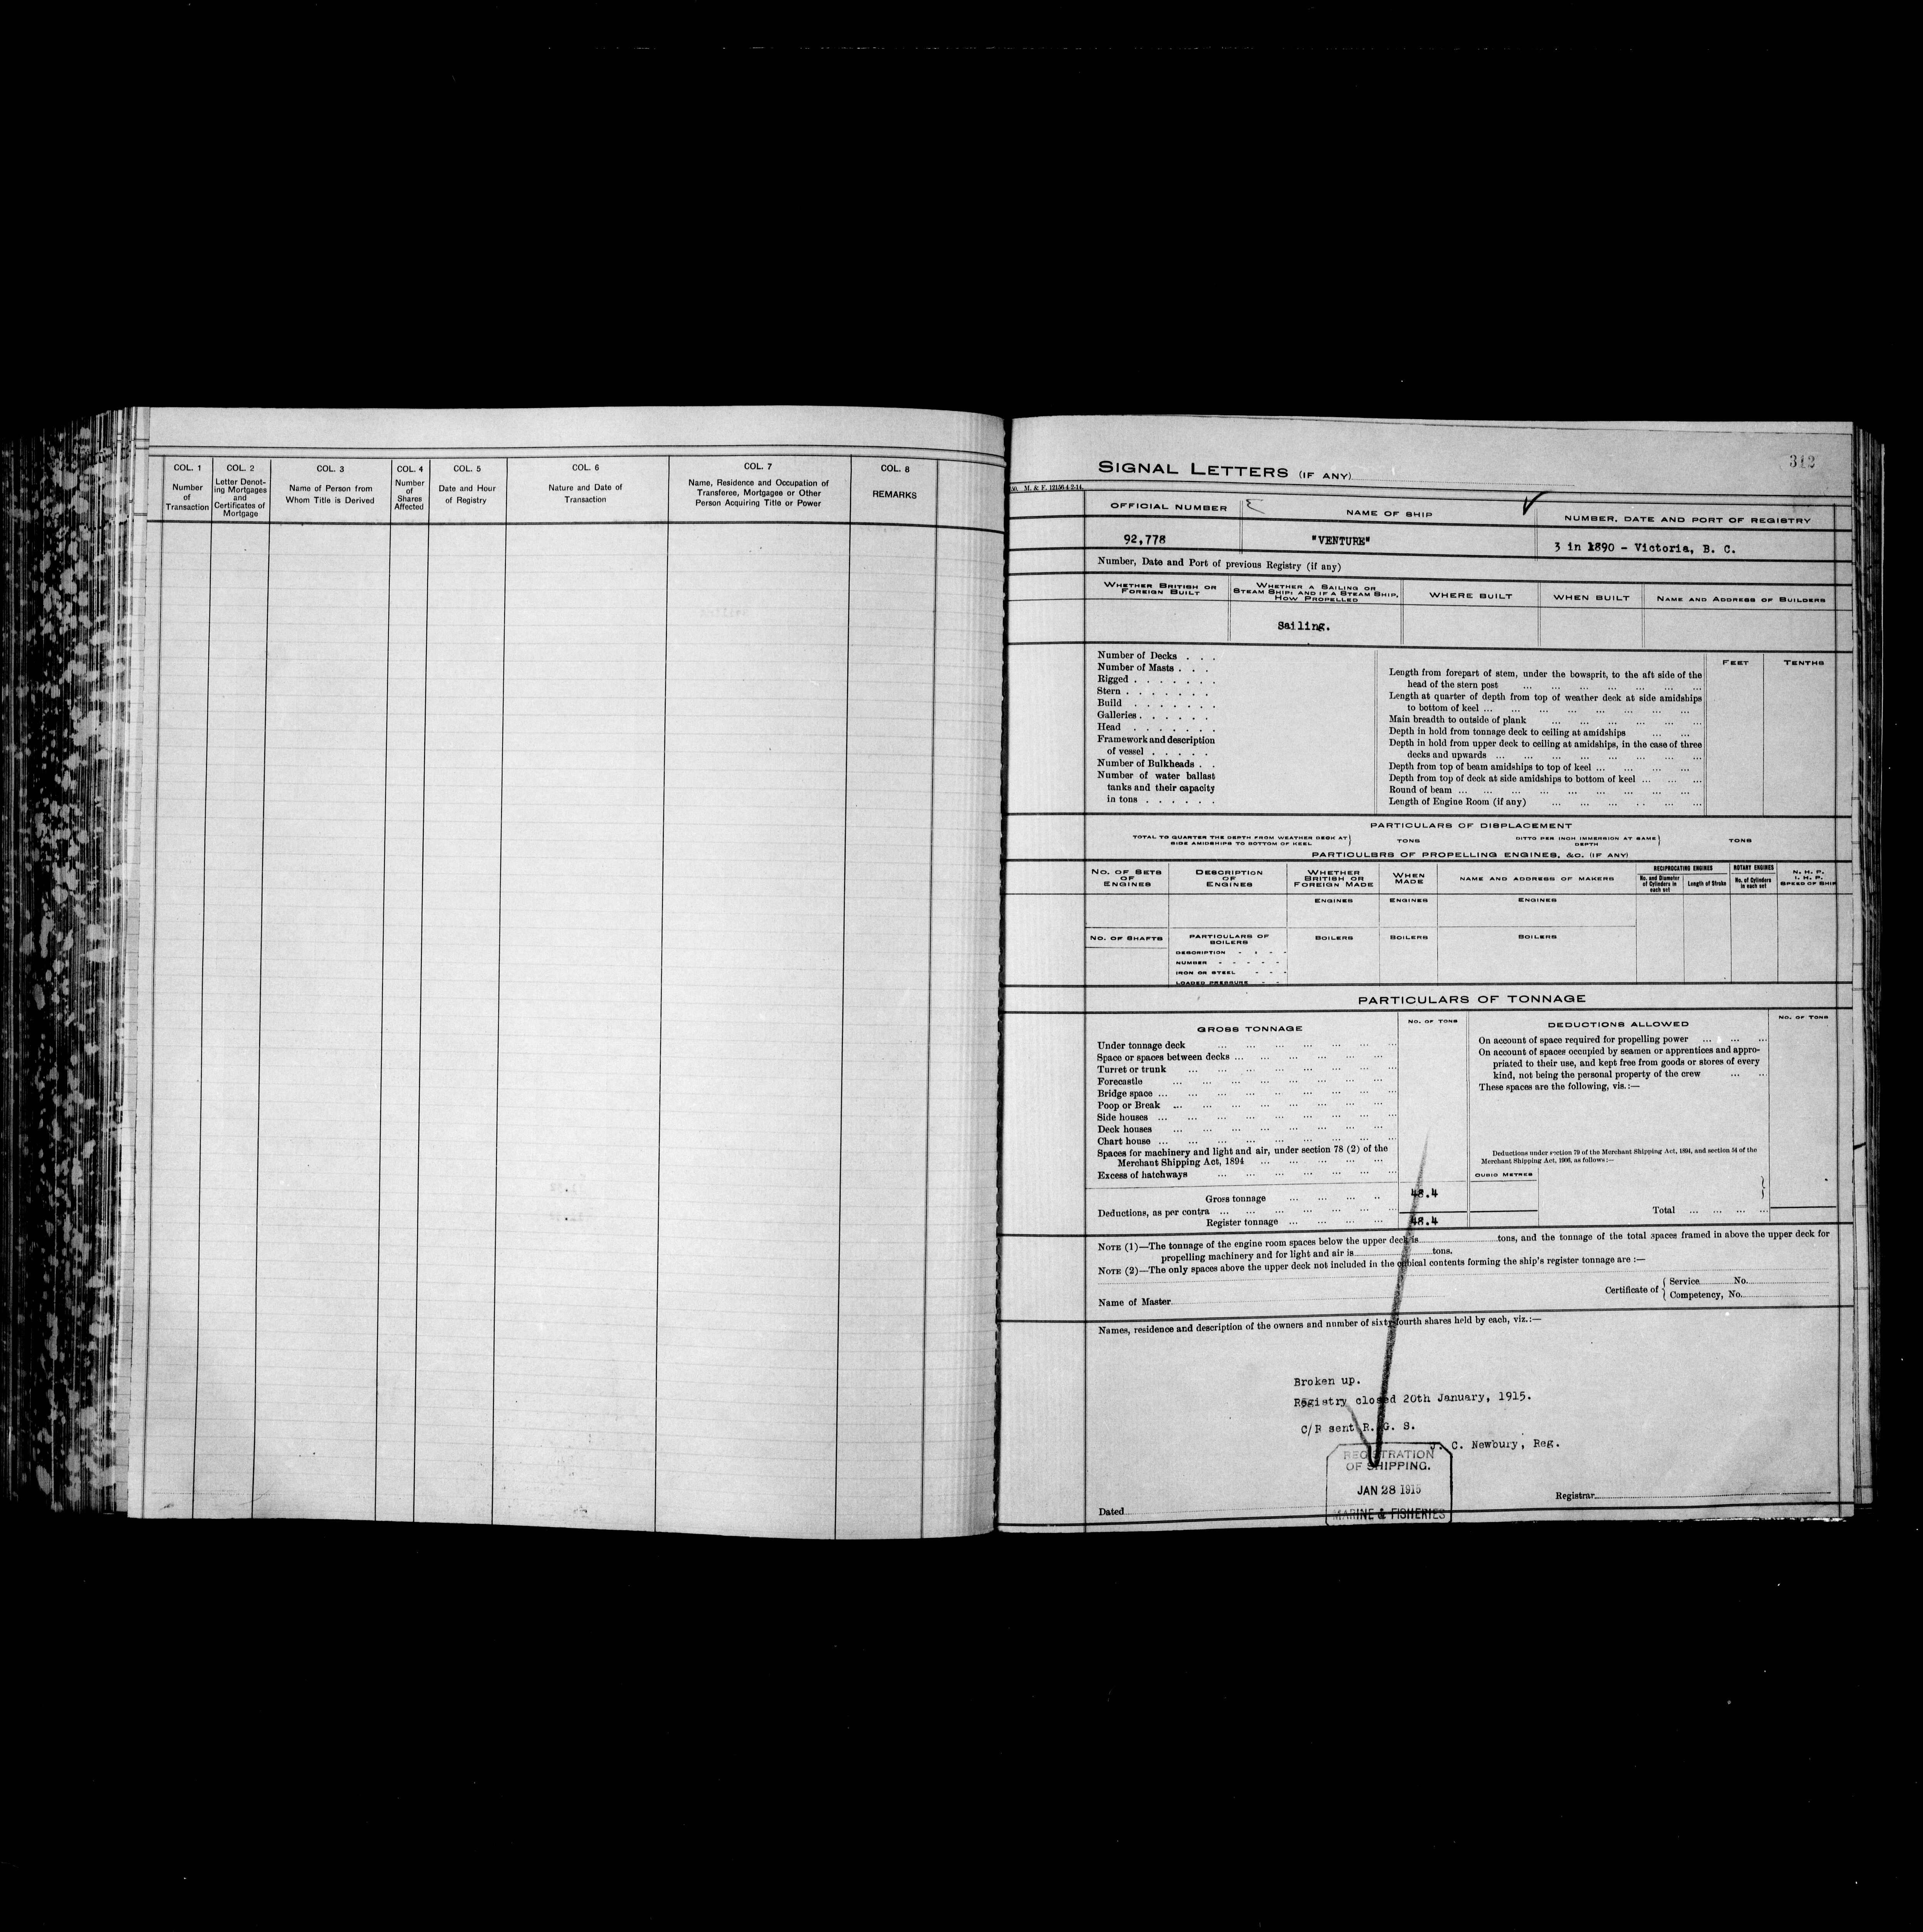 COL. 1
Number
of
Transaction
COL. 2
Letter Denot-
ing Mortgages
and
Certificates of
Mortgage
COL. 3
Name of Person from
Whom Title is Derived
COL. 4
Number
of
Shares
Affected
COL. 5
Date and Hour
of Registry
COL. 6
Nature and Date of
Transaction
COL. 7
Name, Residence and Occupation of
Transferee, Mortgagee or Other
Person Acquiring Title or Power
COL. 8
REMARKS
312
SIGNAL LETTERS (IF ANY)
M. & F. 12156 4-2-14.
OFFICIAL NUMBER
NAME OF SHIP
NUMBER, DATE AND PORT OF REGISTRY
92,778
"VENTURE"
3 in 1890 - Victoria, B. C.
Number, Date and Port of previous Registry (if any)
WHETHER BRITISH OR
FOREIGN BUILT
WHETHER A SAILING OR
STEAM SHIP; AND IF A STEAM SHIP,
HOW PROPELLED
WHERE BUILT
WHEN BUILT
NAME AND ADDRESS OF BUILDERS
Sailing.
Number of Decks . . .
Number of Masts . . .
Rigged . . . . . . .
Stern . . . . . . .
Build . . . . . . .
Galleries . . . . . .
Head . . . . . . .
Framework and description
of vessel . . . . .
Number of Bulkheads . .
Number of water ballast
tanks and their capacity
in tons . . . . . .
FEET
TENTHS
Length from forepart of stem, under the bowsprit, to the aft side of the
head of the stern post ... ... ... ... ... ... ...
Length at quarter of depth from top of weather deck at side amidships
to bottom of keel ... ... ... ... ... ... ... ...
Main breadth to outside of plank ... ... ... ... ... ...
Depth in hold from tonnage deck to ceiling at amidships ... ...
Depth in hold from upper deck to ceiling at amidships, in the case of three
decks and upwards ... ... ... ... ... ... ... ...
Depth from top of beam amidships to top of keel ... ... ... ...
Depth from top of deck at side amidships to bottom of keel ... ... ...
Round of beam ... ... ... ... ... ... ... ... ...
Length of Engine Room (if any) ... ... ... ... ... ...
PARTICULARS OF DISPLACEMENT
TOTAL TO QUARTER THE DEPTH FROM WEATHER DECK AT
SIDE AMIDSHIPS TO BOTTOM OF KEEL
TONS
DITTO PER INCH IMMERSION AT SAME
DEPTH
TONS
PARTICULBRS OF PROPELLING ENGINES, &C. (IF ANY)
NO. OF SETS
OF
ENGINES
DESCRIPTION
OF
ENGINES
WHETHER
BRITISH OR
FOREIGN MADE
WHEN
MADE
NAME AND ADDRESS OF MAKERS
RECIPROCATING ENGINES
No. and Diameter
of Cylinders in
each set
Length of Stroke
ROTARY ENGINES
No. of Cylinders
in each set
N. H. P.
I. H. P.
SPEED OF SHIP
ENGINES
ENGINES
ENGINES
NO. OF SHAFTS
PARTICULARS OF
BOILERS
BOILERS
BOILERS
BOILERS
DESCRIPTION - - - -
NUMBER - - - - -
IRON OR STEEL - - -
LOADED PRESSURE - -
PARTICULARS OF TONNAGE
GROSS TONNAGE
NO. OF TONS
Under tonnage deck ... ... ... ... ... ... ...
Space or spaces between decks ... ... ... ... ... ...
Turret or trunk ... ... ... ... ... ... ...
Forecastle ... ... ... ... ... ... ... ...
Bridge space ... ... ... ... ... ... ... ...
Poop or Break ... ... ... ... ... ... ... ...
Side houses ... ... ... ... ... ... ... ...
Deck houses ... ... ... ... ... ... ... ...
Chart house ... ... ... ... ... ... ... ...
Spaces for machinery and light and air, under section 78 (2) of the
Merchant Shipping Act, 1894 ... ... ... ... ...
Excess of hatchways ... ... ... ... ... ... ...
Gross tonnage ... ... ... ..
48.4
Deductions, as per contra ... ... ... ... ... ... ...
Register tonnage ... ... ... ...
48.4
DEDUCTIONS ALLOWED
NO. OF TONS
On account of space required for propelling power ... ... ...
On account of spaces occupied by seamen or apprentices and appro-
priated to their use, and kept free from goods or stores of every
kind, not being the personal property of the crew ... ...
These spaces are the following, vis.:—
Deductions under section 79 of the Merchant Shipping Act, 1894, and section 54 of the
Merchant Shipping Act, 1906, as follows:—
CUBIC METRES
Total ... ... ... ...
NOTE (1)—The tonnage of the engine room spaces below the upper deck is tons, and the tonnage of the total spaces framed in above the upper deck for
propelling machinery and for light and air is tons.
NOTE (2)—The only spaces above the upper deck not included in the cubical contents forming the ship's register tonnage are :—
Name of Master
Certificate of { Service No.
Competency, No.
Names, residence and description of the owners and number of sixty-fourth shares held by each, viz.:—
Broken up.
Registry closed 20th January, 1915.
C/R sent R. G. S.
J. C. Newbury, Reg.
REGISTRATION
OF SHIPPING.
JAN 28 1915
MARINE & FISHERIES
Registrar
Dated